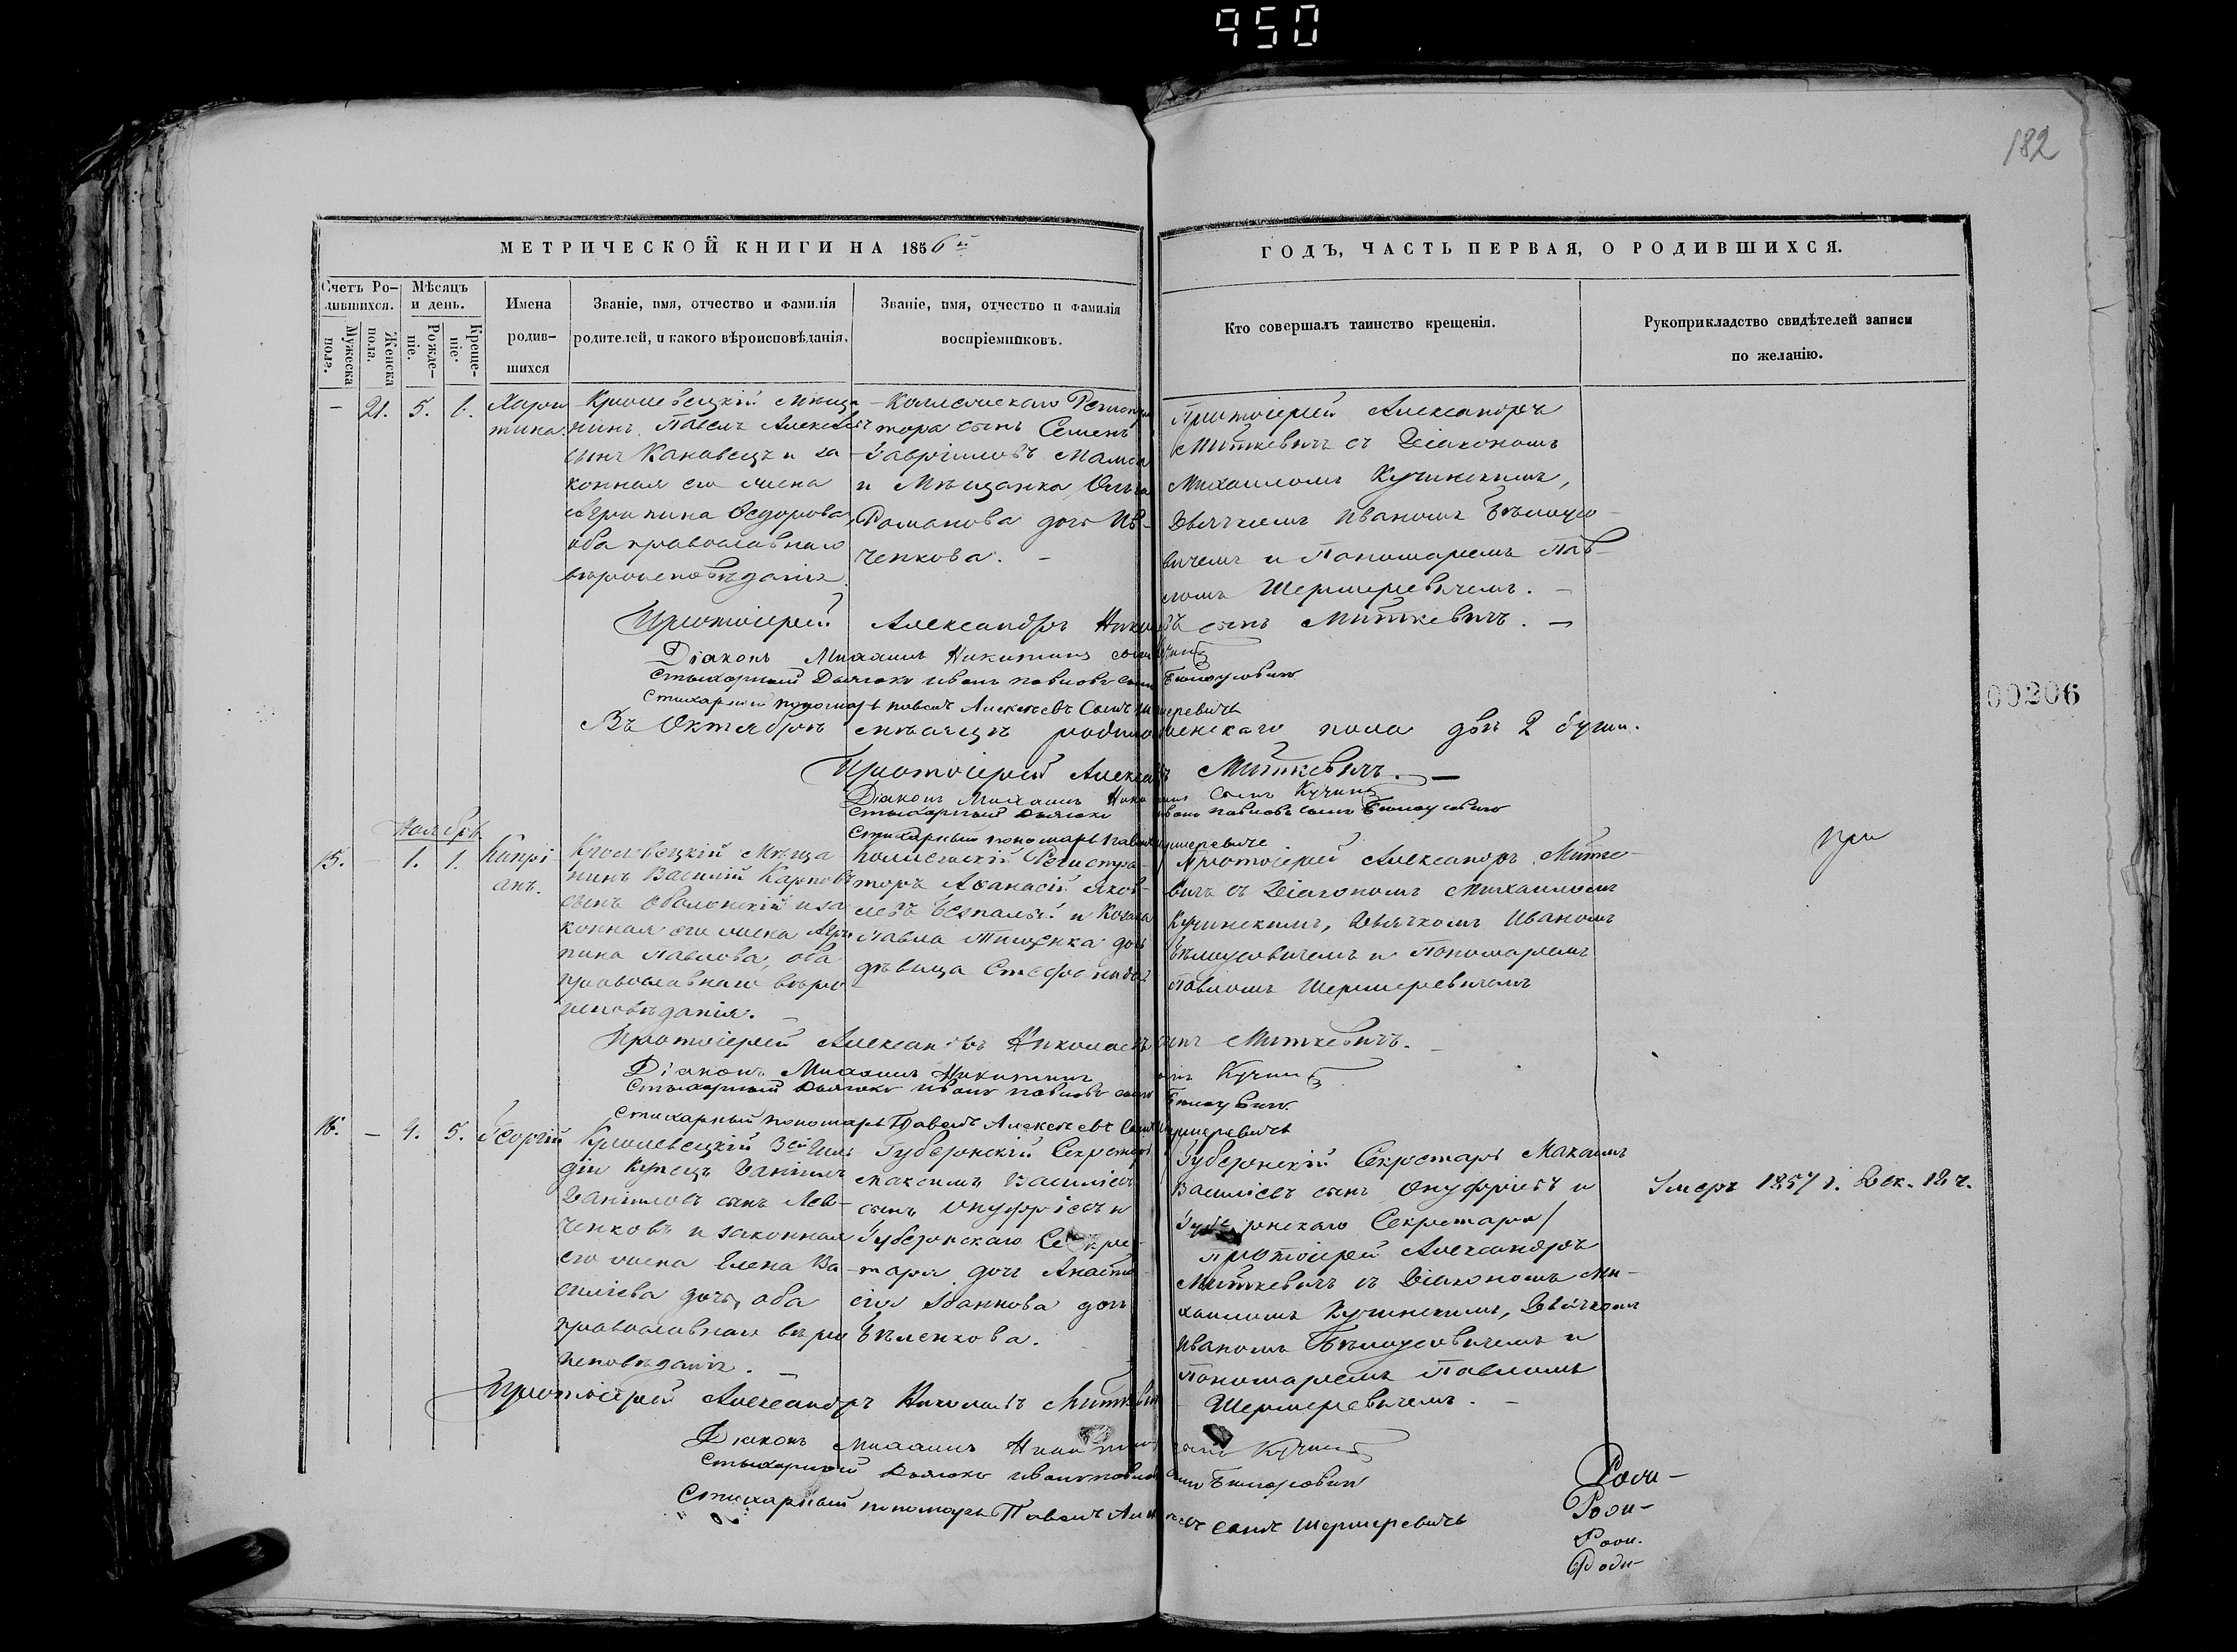 950
182
МЕТРИЧЕСКОЙ КНИГИ НА 1856й
Счетъ Ро-
дившихся.
Мужеска
пола.
Женска
пола.
Мѣсяцъ
и день.
Рожде-
ніе.
Креще-
ніе.
Имена
родив-
шихся
Званіе, имя, отчество и фамилія
родителей, и какого вѣроисповѣданія.
Званіе, имя, отчество и фамилія
воспріемниковъ.
ГОДЪ, ЧАСТЬ ПЕРВАЯ, О РОДИВШИХСЯ.
Кто совершалъ таинство крещенія.
Рукоприкладство свидѣтелей записи
по желанію.
– 21. 5. 6.
Хари
тина.
Кролевецкій мѣща
нинъ Павелъ Алексѣевъ
сынъ Кановецъ и за
конная его жена
Агрипина Ѳедорова,
оба православнаго
вѣроисповѣданія.
Коллежскаго Регистра
тора сынъ Семенъ
Гавріиловъ
и Мѣщанка Ольга
Романова дочь Ив-
ченкова. –
Протоіерей Александръ
Миткевичъ съ Діакономъ
Михаиломъ Кучинскимъ,
Дьячкомъ Иваномъ Бѣлоусо-
вичемъ и Пономаремъ Пав-
ломъ Шермеревичемъ. –
Протоіерей Александръ сынъ Миткевичъ. –
Діаконъ Михаилъ Никитинъ сынъ
Стихарный Дьячокъ Иванъ Павловъ сынъ Белоусовичъ
Стихарный пономарь Павелъ Алексѣевъ Сынъ Шермеревичъ
Въ Октябрѣ мѣсяцѣ женскаго пола двѣ 2 души.
Протоіерей Миткевичъ. –
Діаконъ Михаилъ сынъ
Стихарный Дьячокъ Иванъ Павловъ сынъ Белоусовичъ
Стихарный пономарь Павелъ Шермеревичъ
Ноябрь
15. – 1. 1.
Кипрі
анъ.
Кролевецкій Мѣща
нинъ Василій Карповъ
сынъ Оболонскій и за
конная его жена Агри
пина Павлова, оба
православнаго вѣро
исповѣданія. –
Коллежскій Регистра
торъ Аѳанасій Яков-
левъ Безпалый и Козака
Павла Тищенка дочь
дѣвица
Протоіерей Александръ Митке-
вичъ съ Діакономъ Михаиломъ
Кучинскимъ, Дьячкомъ Иваномъ
Бѣлоусовичемъ и Пономаремъ
Павломъ Шермеревичемъ
Протоіерей Александръ Николаевъ сынъ Миткевичъ. –
Діаконъ Михаилъ Никитинъ сынъ
Стихарный Дьячокъ Иванъ Павловъ сынъ
Стихарный пономарь Павелъ Алексѣевъ Сынъ Шермеревичъ
16. – 4. 5.
Георгій
Кролевецкій 3ей Гиль
діи Купецъ Даніилъ
Даніиловъ сынъ Лев-
ченковъ и законная
его жена Елена Ва
силіева дочь, оба
православнаго вѣро
исповѣданія. –
Губернскій Секретарь
Максимъ Василіевъ
сынъ Онуфріевъ и
Губернскаго Секре-
таря дочь Анаста
сія Іоаннова дочь
Бѣленкова.
Губернскій Секретарь Максимъ
Василіевъ сынъ Онуфріевъ и
Губернскаго Секретаря/
Протоіерей Александръ
Миткевичъ съ Діакономъ Ми-
хаиломъ Кучинскимъ, Дьячкомъ
Иваномъ Бѣлоусовичемъ и
Пономаремъ Павломъ
Шермеревичемъ. –
Умеръ 1857 г. Дек. 12 ч.
Протоіерей Александръ Николаевъ Миткевичъ
Діаконъ Михаилъ Никитинъ сынъ
Стихарный Дьячокъ Иванъ Павловъ сынъ
Стихарный пономарь Павелъ Алексѣевъ сынъ Шермеревичъ
при
00206